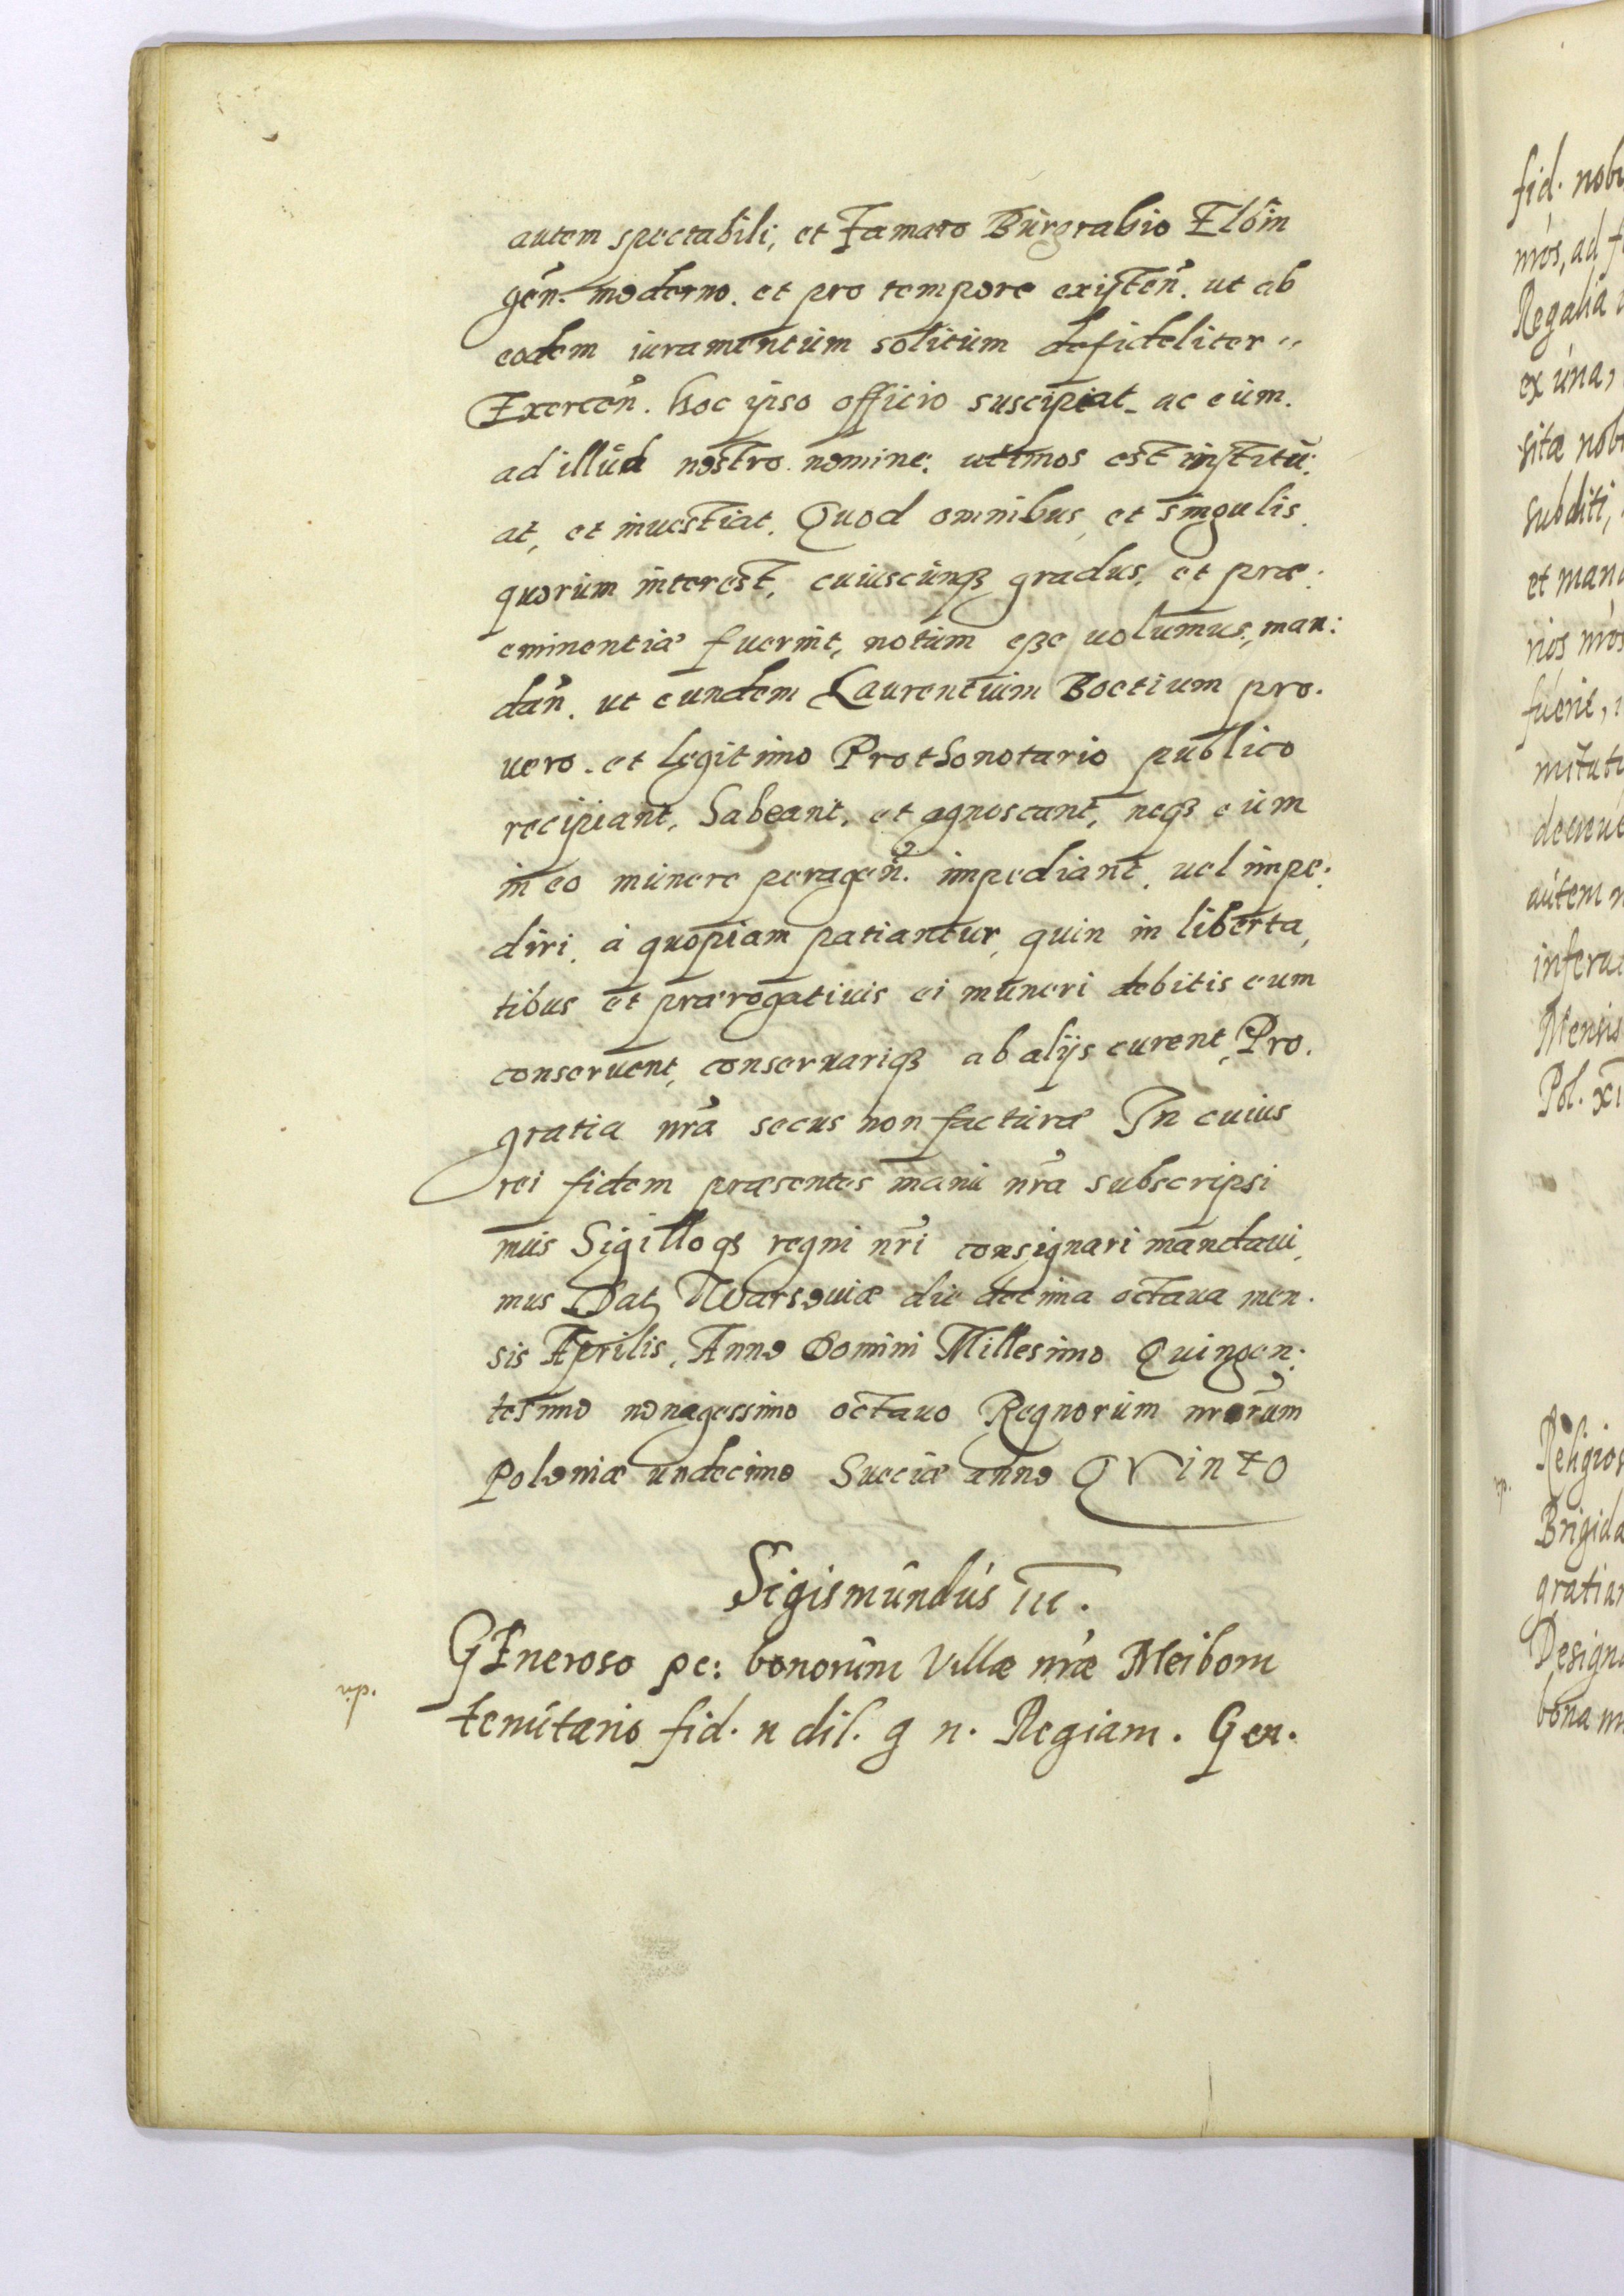 autem spectabili, et Famato Burgrabio Elbin
gen̄. moderno. et pro tempore existen̄. ut ab
eodem iuramentum solitum de fideliter „
Exercen̄. hoc ipso officio suscipiat ac eum.
ad illud nostro nomine. uti mos est institu:
at, et inuestiat. Quod omnibus, et singulis.
quorum interest, cuiuscunqз gradus, et præ:
eminentiæ fuerint, notum eße uolumus, man:
dan̄. ut eundem Laurentium Boetium pro.
uero. et legitimo Prothonotario publico
recipiant, habeant, et agnoscant, neqз eum
in eo munere peragen̄. impediant, uel impe:
diri, à quopiam patiantur, quin in liberta,
tibus et prærogatiuis ei muneri debitis eum
conseruent, conseruariqз ab alijs curent, Pro.
gratia nrā secus non facturæ In cuius
rei fidem præsentes manu nrā subscripsi
mus Sigilloqз regni nrī consignari mandaui,
mus Dat Warsouiæ die decima octaua men.
sis Aprilis, Anno Domini Millesimo Quingen:
tesimo nonagessimo octauo Regnorum nrorum
Poloniæ undecimo Sueciæ anno QVinto
Sigismundus III.
GEneroso pc: bonorum Villæ nræ Meibom
tenutario fid. n dil. g n. Regiam. Gen.
fid. nob
nrós, ad f
Regalia
ex una,
sitæ nob
subditi,
et man
rios nrós
fuerit,
autem n
Mensis
Pol. xi
Religios
Brigida
gratiar
Design
bona